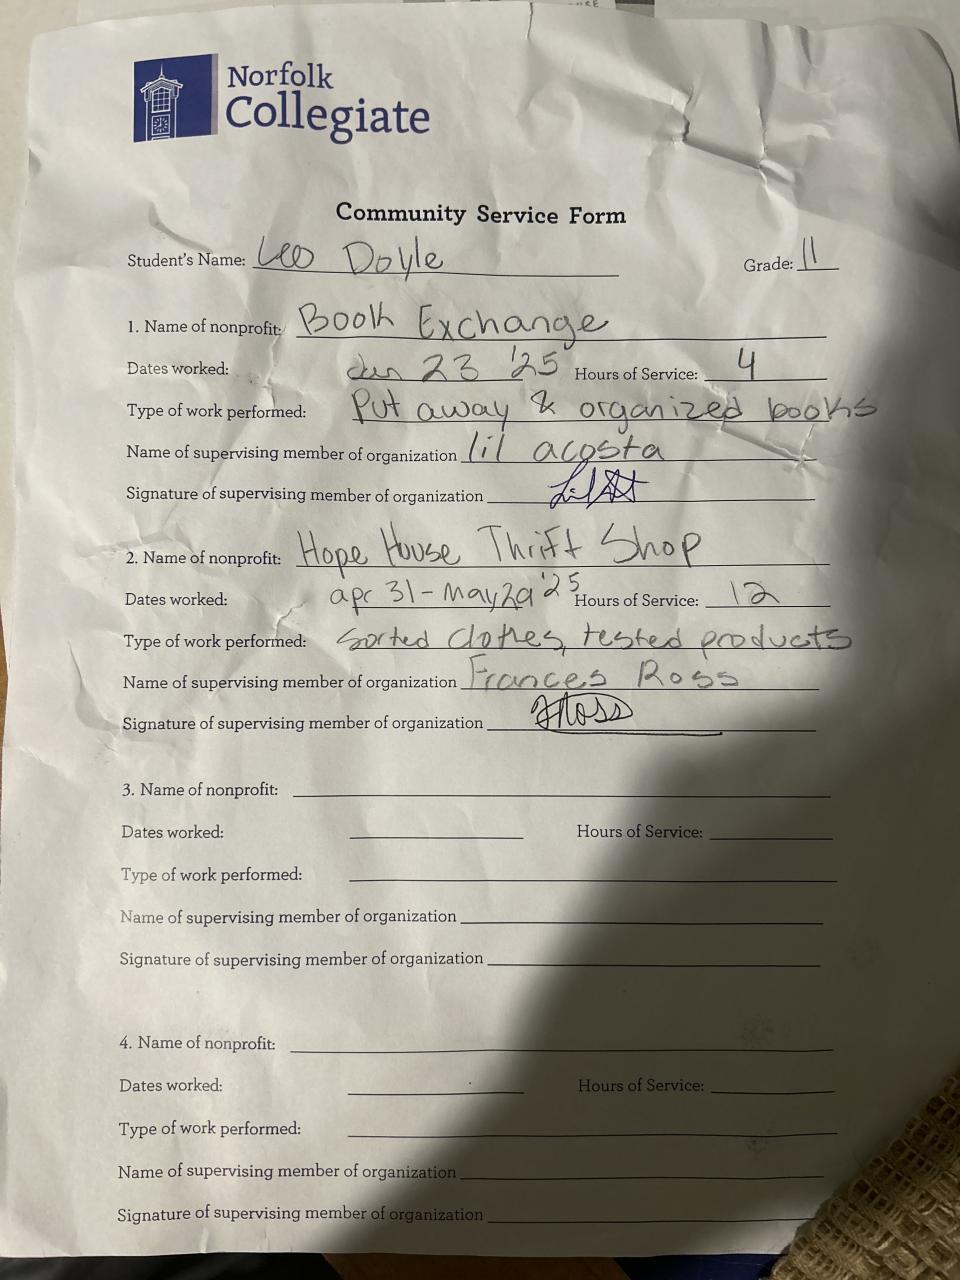 Norfolk
Collegiate
Community Service Form
Student's Name: Leo Doyle Grade: 11
1. Name of nonprofit: Book Exchange
Dates worked: Jun 23 '25 Hours of Service: 4
Type of work performed: Put away & organized books
Name of supervising member of organization lil acosta
Signature of supervising member of organization
2. Name of nonprofit: Hope House Thrift Shop
Dates worked: apr 31 - May 29 '25 Hours of Service: 12
Type of work performed: Sorted clothes, tested products
Name of supervising member of organization Frances Ross
Signature of supervising member of organization FRoss
3. Name of nonprofit:
Dates worked: Hours of Service:
Type of work performed:
Name of supervising member of organization
Signature of supervising member of organization
4. Name of nonprofit:
Dates worked: Hours of Service:
Type of work performed:
Name of supervising member of organization
Signature of supervising member of organization